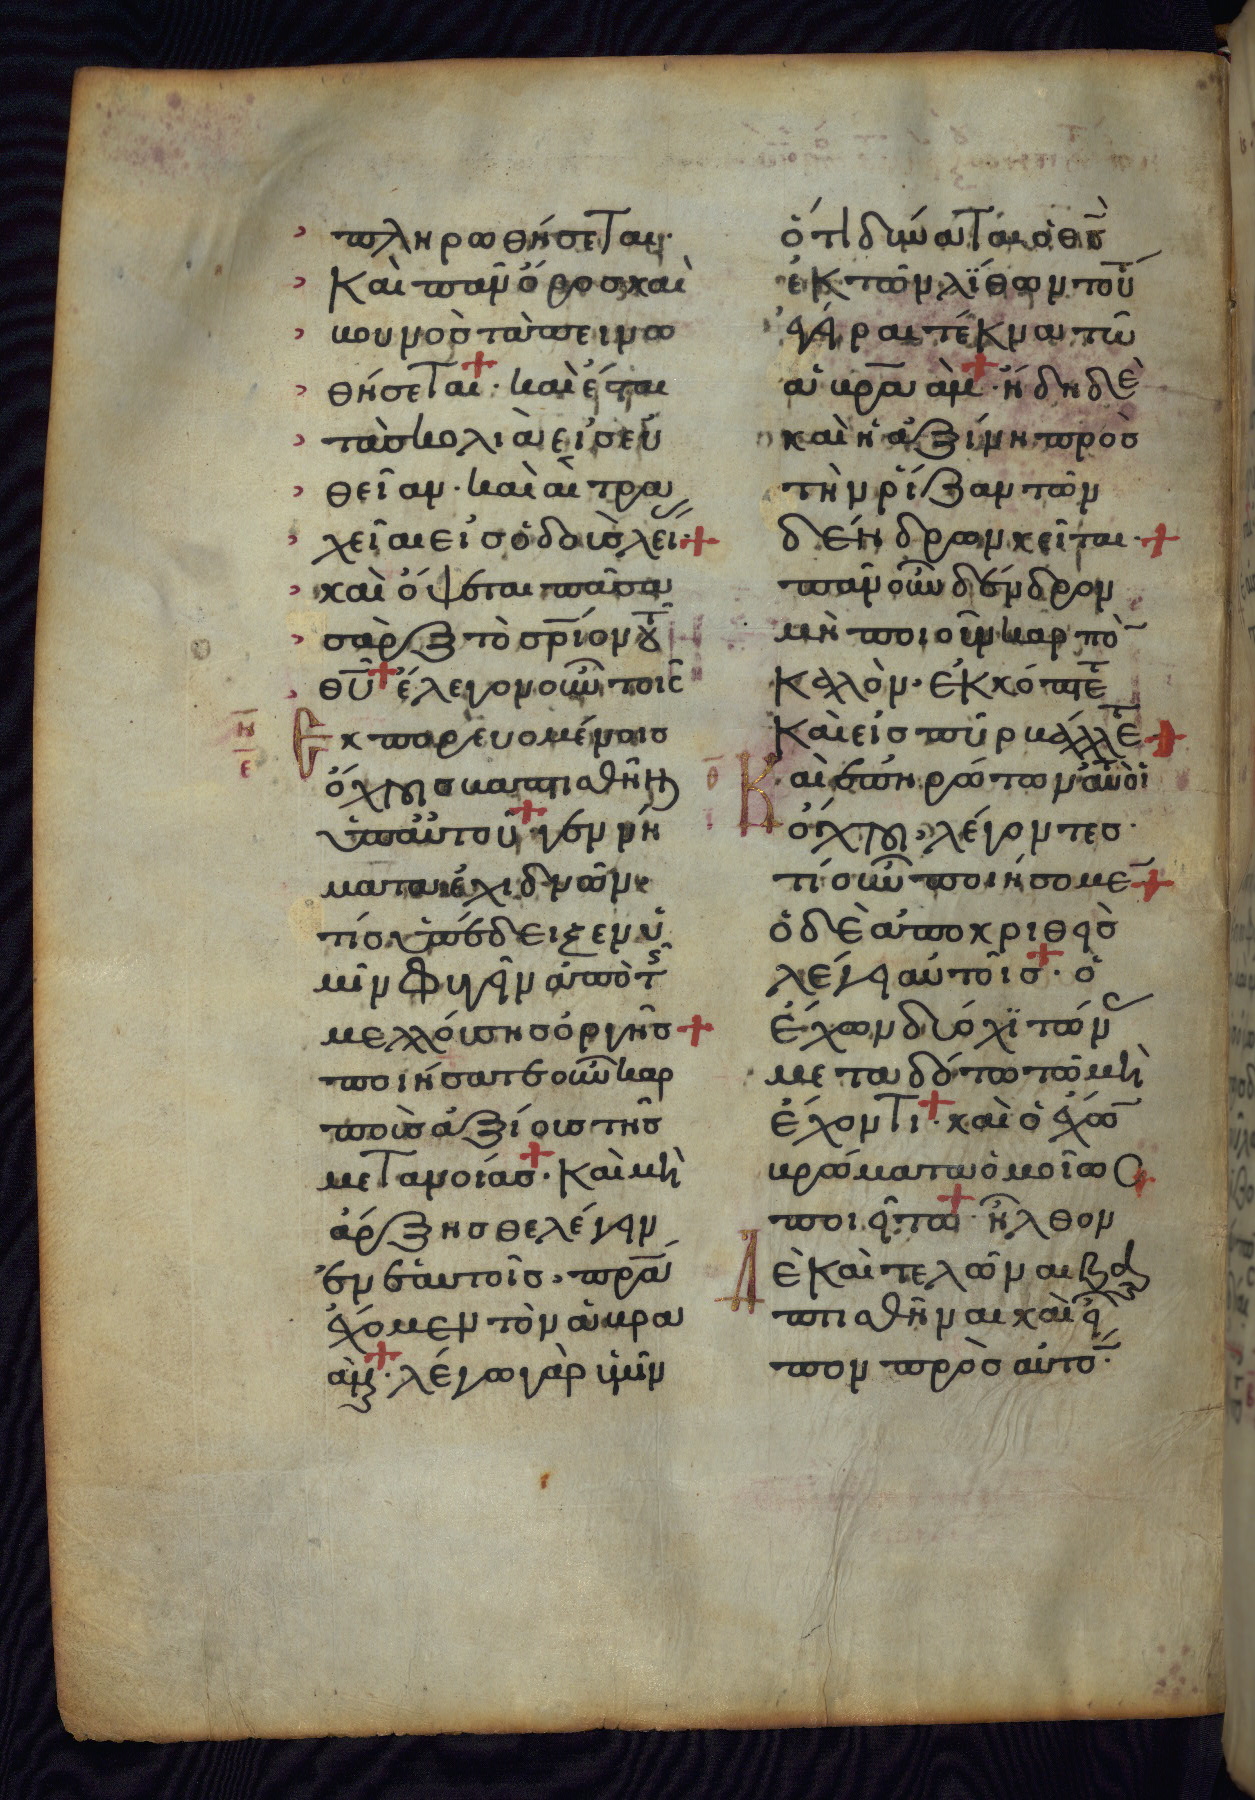 πληρωθήσεται·
Καὶ πᾶν ὄρος καὶ
βουνὸς ταπεινω
θήσεται· καὶ ἔσται
τὰ σκολιὰ εἰς εὐ
θεῖαν· καὶ αἱ τρα
χεῖαι εἰς ὁδοὺς λεί·
καὶ ὄψεται πᾶσα
σὰρξ τὸ σριον τοῦ
θυ ἔλεγεν οὖν τοῖς
η
ε
Εκπορευομένοις
ὄχλοις βαπτισθῆναι
ὑπ αὐτοῦ· γεννή
ματα ἐχιδνῶν·
τίς ὑπέδειξεν ὑ
μῖν φυγεῖν ἀπὸ τῆς
μελλούσης ὀργῆς
ποιήσατε οὖν καρ
ποὺς ἀξίους τῆς
μετανοίας· Καὶ μὴ
ἄρξησθε λέγειν
ἐν ἑαυτοῖς· πρα
ἔχομεν τὸν ἀβρα
ὰμ· λέγω γὰρ ὑμῖν
ὅτι δύναται ὁ θς
ἐκ τῶν λίθων τού
ἐγεῖραι τέκνα τῶ
ἀβραὰμ· ἤδη δὲ
καὶ ἡ ἀξίνη πρὸς
τὴν ῥίζαν τῶν
δένδρων κεῖται·
πᾶν οὖν δένδρον
μὴ ποιοῦν καρπὸ
Καλὸν· ἐκκόπτε
Καὶ εἰς πῦρ βάλλετ
θ
Καὶ ἐπηρώτων αὐτὸν οἱ
ὄχλοι· λέγοντες·
τί οὖν ποιήσομε
ὁ δὲ ἀποκριθεὶς
λέγει αὐτοῖς· ὁ
ἔχων δύο χιτών
μεταδότω τῶ μὴ
ἔχοντι· καὶ ὁ ἔχω
βρώματα ὁμοίως
ποιείτω· ἦλθον
Δὲ Καὶ τελῶναι βα
πτισθῆναι καὶ εἶ
πον πρὸς αὐτο·